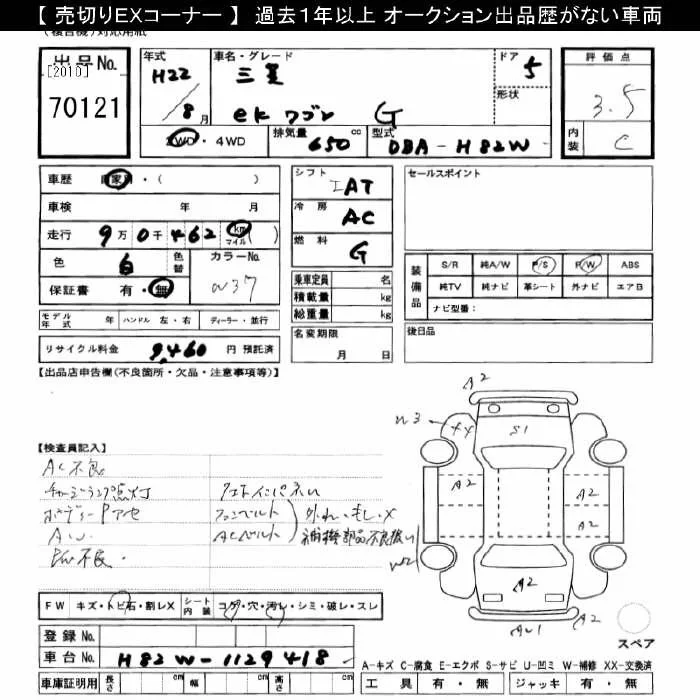 【 売切りEXコーナー 】 過去1年以上 オークション出品歴がない車両
出品No.
[2010]
70121
年式
H22
8月
車名・グレード
三菱
ek ワゴン G
ドア
5
形状
評価点
3.5
内装
C
2WD・4WD
排気量 650 cc
型式 DBA-H82W
車歴 自家・( )
車検 年 月
走行 9万0千462 ( km マイル )
色 白 色替
カラーNo. W37
保証書 有・無
シフト IAT
冷房 AC
燃料 G
乗車定員 名
積載量 kg
総重量 kg
セールスポイント
装備品
S/R 純A/W P/S P/W ABS
純TV 純ナビ 革シート 外ナビ エアB
ナビ型番:
モデル年式 年 ハンドル 左・右 ディーラー・並行
リサイクル料金 9,460 円 預託済
名変期限 月 日
後日品
【出品店申告欄(不良箇所・欠品・注意事項等)】
【検査員記入】
AC不良
チャージランプ点灯
ボディーPアセ
AW
PW不良
フロントインパネW
ファンベルト
ACベルト
外れ・もしX
補機部品不良扱い
A2
W3
XX
S1
A2
A2
A2
A2
W2
A2
AW1
スペア
FW キズ・トビ石・割レX
シート内装 コゲ・穴・汚レ・シミ・破レ・スレ
登録No.
車台No. H82W-1129418
車庫証明用 長さ cm 幅 cm 高さ cm
A-キズ C-腐食 E-エクボ S-サビ U-凹ミ W-補修 XX-交換済
工具 有・無 ジャッキ 有・無